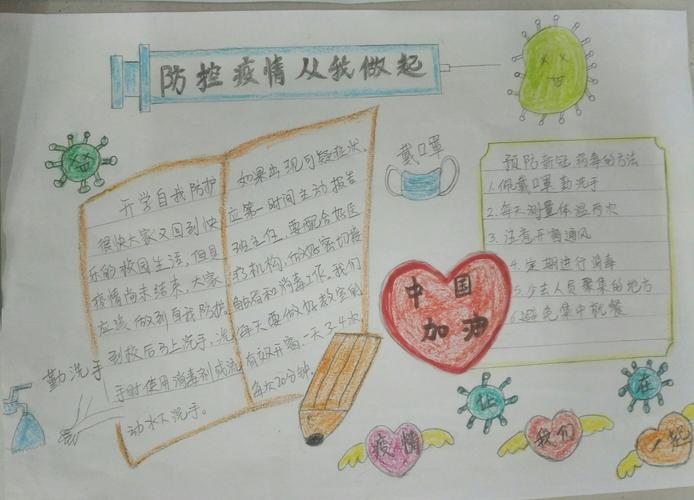 防控疫情从我做起
开学自我防护
很快大家又回到快
乐的校园生活，但是
疫情尚未结束，大家
应该做到自我防护。
到校后马上洗手，洗
手时使用消毒剂或流
动水下洗手。
如果出现可疑症状，
应第一时间主动报告
班主任，要配合好医
疗机构，做好密切接
和消毒工作。我们
每天要做好教室的
有效开窗，一天3-4次
每次20分钟。
戴口罩
预防新冠病毒的方法
1.佩戴口罩 勤洗手
2.每天测量体温两次
3.注意开窗通风
4.定期进行消毒
5.少去人员聚集的地方
6.避免集中就餐
中国
加油
勤洗手
疫情
让
我们
在
一起